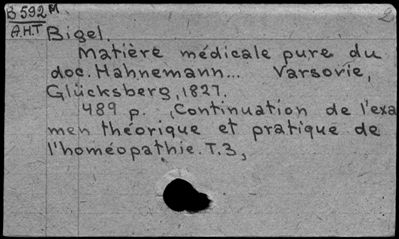 B 592 M
A.H.T Bigel.
Matière médicale pure du
doc. Hahnemann... Varsovie,
Glücksberg, 1827.
489 p. (Continuation de l'exa
men théorique et pratique de
l'homéopathie. T.3,
2